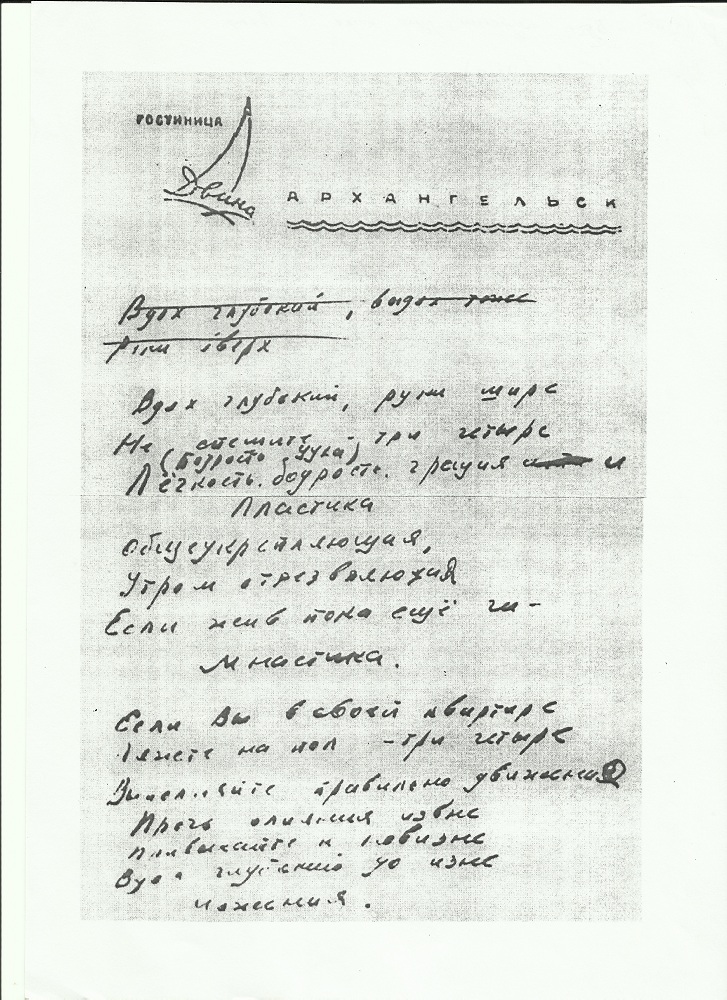 ГОСТИНИЦА
Двина
АРХАНГЕЛЬСК
Вдох глубокий, выдох тоже
Руки вверх
Вдох глубокий, руки шире
Не спешите - три четыре
(Бодрость духа)
Лёгкость. бодрость. грация и
Пластика
Общеукрепляющая,
Утром отрезвляющая
Если жив пока ещё ги-
мнастика.
Если Вы в своей квартире
Ляжете на пол - три четыре
Выполняйте правильно движения
Прочь влияния извне
Привыкайте к новизне
Вдох глубокий до изне
можения.